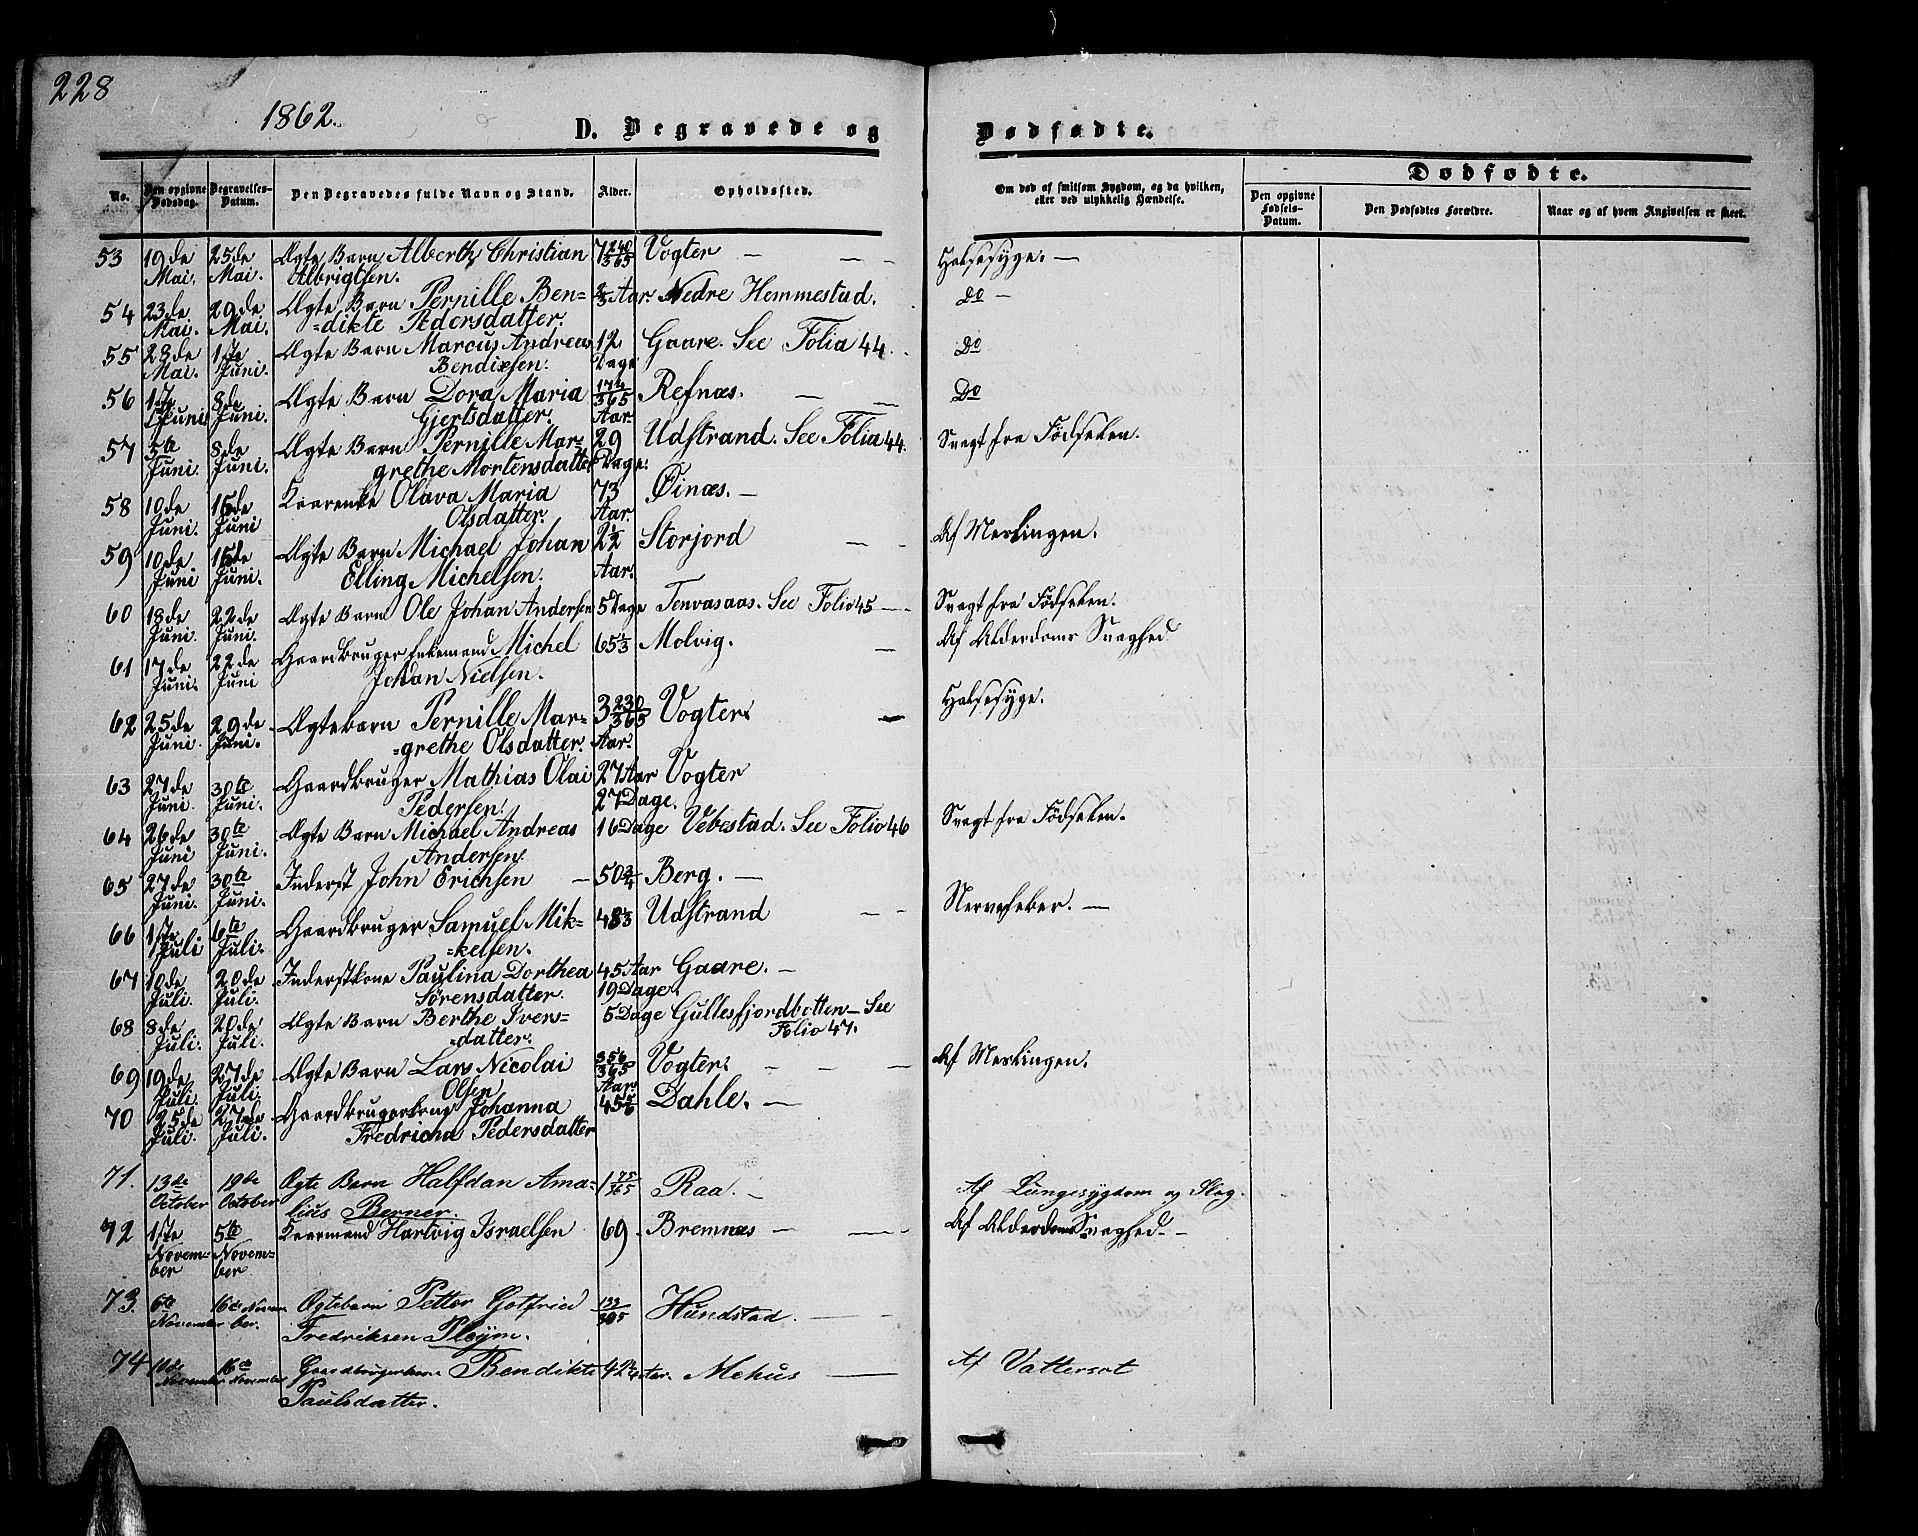 228
1862.
D. Begravede og Dødfødte.
Dødfødte.
No. Den opgivne Dødsdag. Begravelses-Datum. Den Begravedes fulde Navn og Stand. Alder. Opholdssted. Om død af smitsom Sygdom, og da hvilken, eller ved ulykkelig Hændelse. Den opgivne Fødsels-Datum. Den Dødfødtes Forældre. Naar og af hvem Angivelsen er skeet.
53 19de Mai. 25de Mai. Ægte Barn Alberth Christian 7 240/365 Vogter — — — Halsesyge. —
Albrigtsen.
54 23de Mai. 29de Mai. Ægte Barn Pernille Ben= Aar. Nedre Hemmestad. Do —
=dikte Pedersdatter.
55 28de Mai. 1ste Juni. Ægte Barn Marcus Andreas 12 Dage Gaare. See Folia 44. Do
Bendixsen.
56 1ste Juni 8de Juni. Ægte Barn Dora Maria /365 Aar. Refnæs. — — Do
Gjertsdatter.
57 5te Juni. 8de Juni. Ægte Barn Pernille Mar= 29 Dage. Udstrand. See Folia 44. Svagt fra Födselen.
grethe Mortensdatter
58 10de Juni. 15de Juni Kaarenke Olava Maria 73 Aar. Øinæs. —
Olsdatter.
59 10de Juni 15de Juni. Ægte Barn Michael Johan 2½ Aar. Storjord — — Af Meslingen.
Elling Michelsen.
60 18de Juni. 22de Juni. Ægte Barn Ole Johan Andersen 5 Dage Tenvasaas. See Folio 45 — Svagt fra Födselen.
61 17de Juni. 22de Juni Gaardbruger Enkemand Michel 65⅓ Molvig. — Af Alderdoms Svaghed.
Johan Nielsen.
62 25de Juni. 29de Juni. Ægtebarn Pernille Mar= 3 230/365 Aar. Vogter. — Halsesyge.
=grethe Olsdatter.
63 27de Juni. 30te Juni. Gaardbruger Mathias Olai 27 Aar 27 Dage. Vogter
Pedersen.
64 26de Juni 30te Juni. Ægte Barn Michael Andreas 16 Dage Vebestad. See Folio 46 Svagt fra Födselen.
Andersen.
65 27de Juni. 30te Juni. Inderst John Erichsen — 50 Berg. —
66 1ste Juli 6te Juli. Gaardbruger Samuel Mik= 48⅓ Udstrand — — Nervefeber. —
=kelsen.
67 10de Juli. 20de Juli. Inderstkone Paulina Dorthea 45 Aar 19 Dage. Gaare. —
Sørensdatter.
68 8de Juli. 20de Juli. Ægte Barn Berthe Ivers= 5 Dage Gullesfjordbotten — See
=datter. Folio 47.
69 19de Juli. 27de Juli. Ægte Barn Lars Nicolai 356/365 Aar. Vogter. — — — Af Meslingen.
Olsen
70 25de Juli. 27de Juli. Gaardbrugerkone Johanna 45⅚ Dahle. —
Fredricha Pedersdatter
71. 13de October 19de October Ægte Barn Halfdan Ama= 1 75/365 Raa. — Af Lungesygdom og Slag.
lius Berner.
72 1ste November 5te November Kaarmand Hartvig Israelsen 69. Bremnæs — — Af Alderdoms Svaghed. —
73. 6te November 16de November. Ægtebarn Petter Gotfried 133/365 Hundstad. —
Fredriksen Pleym.
74 10de November 16de November Gaardbrugerkone Bendikte 42 Aar. Mehus — Af Vattersot
Paulsdatter.